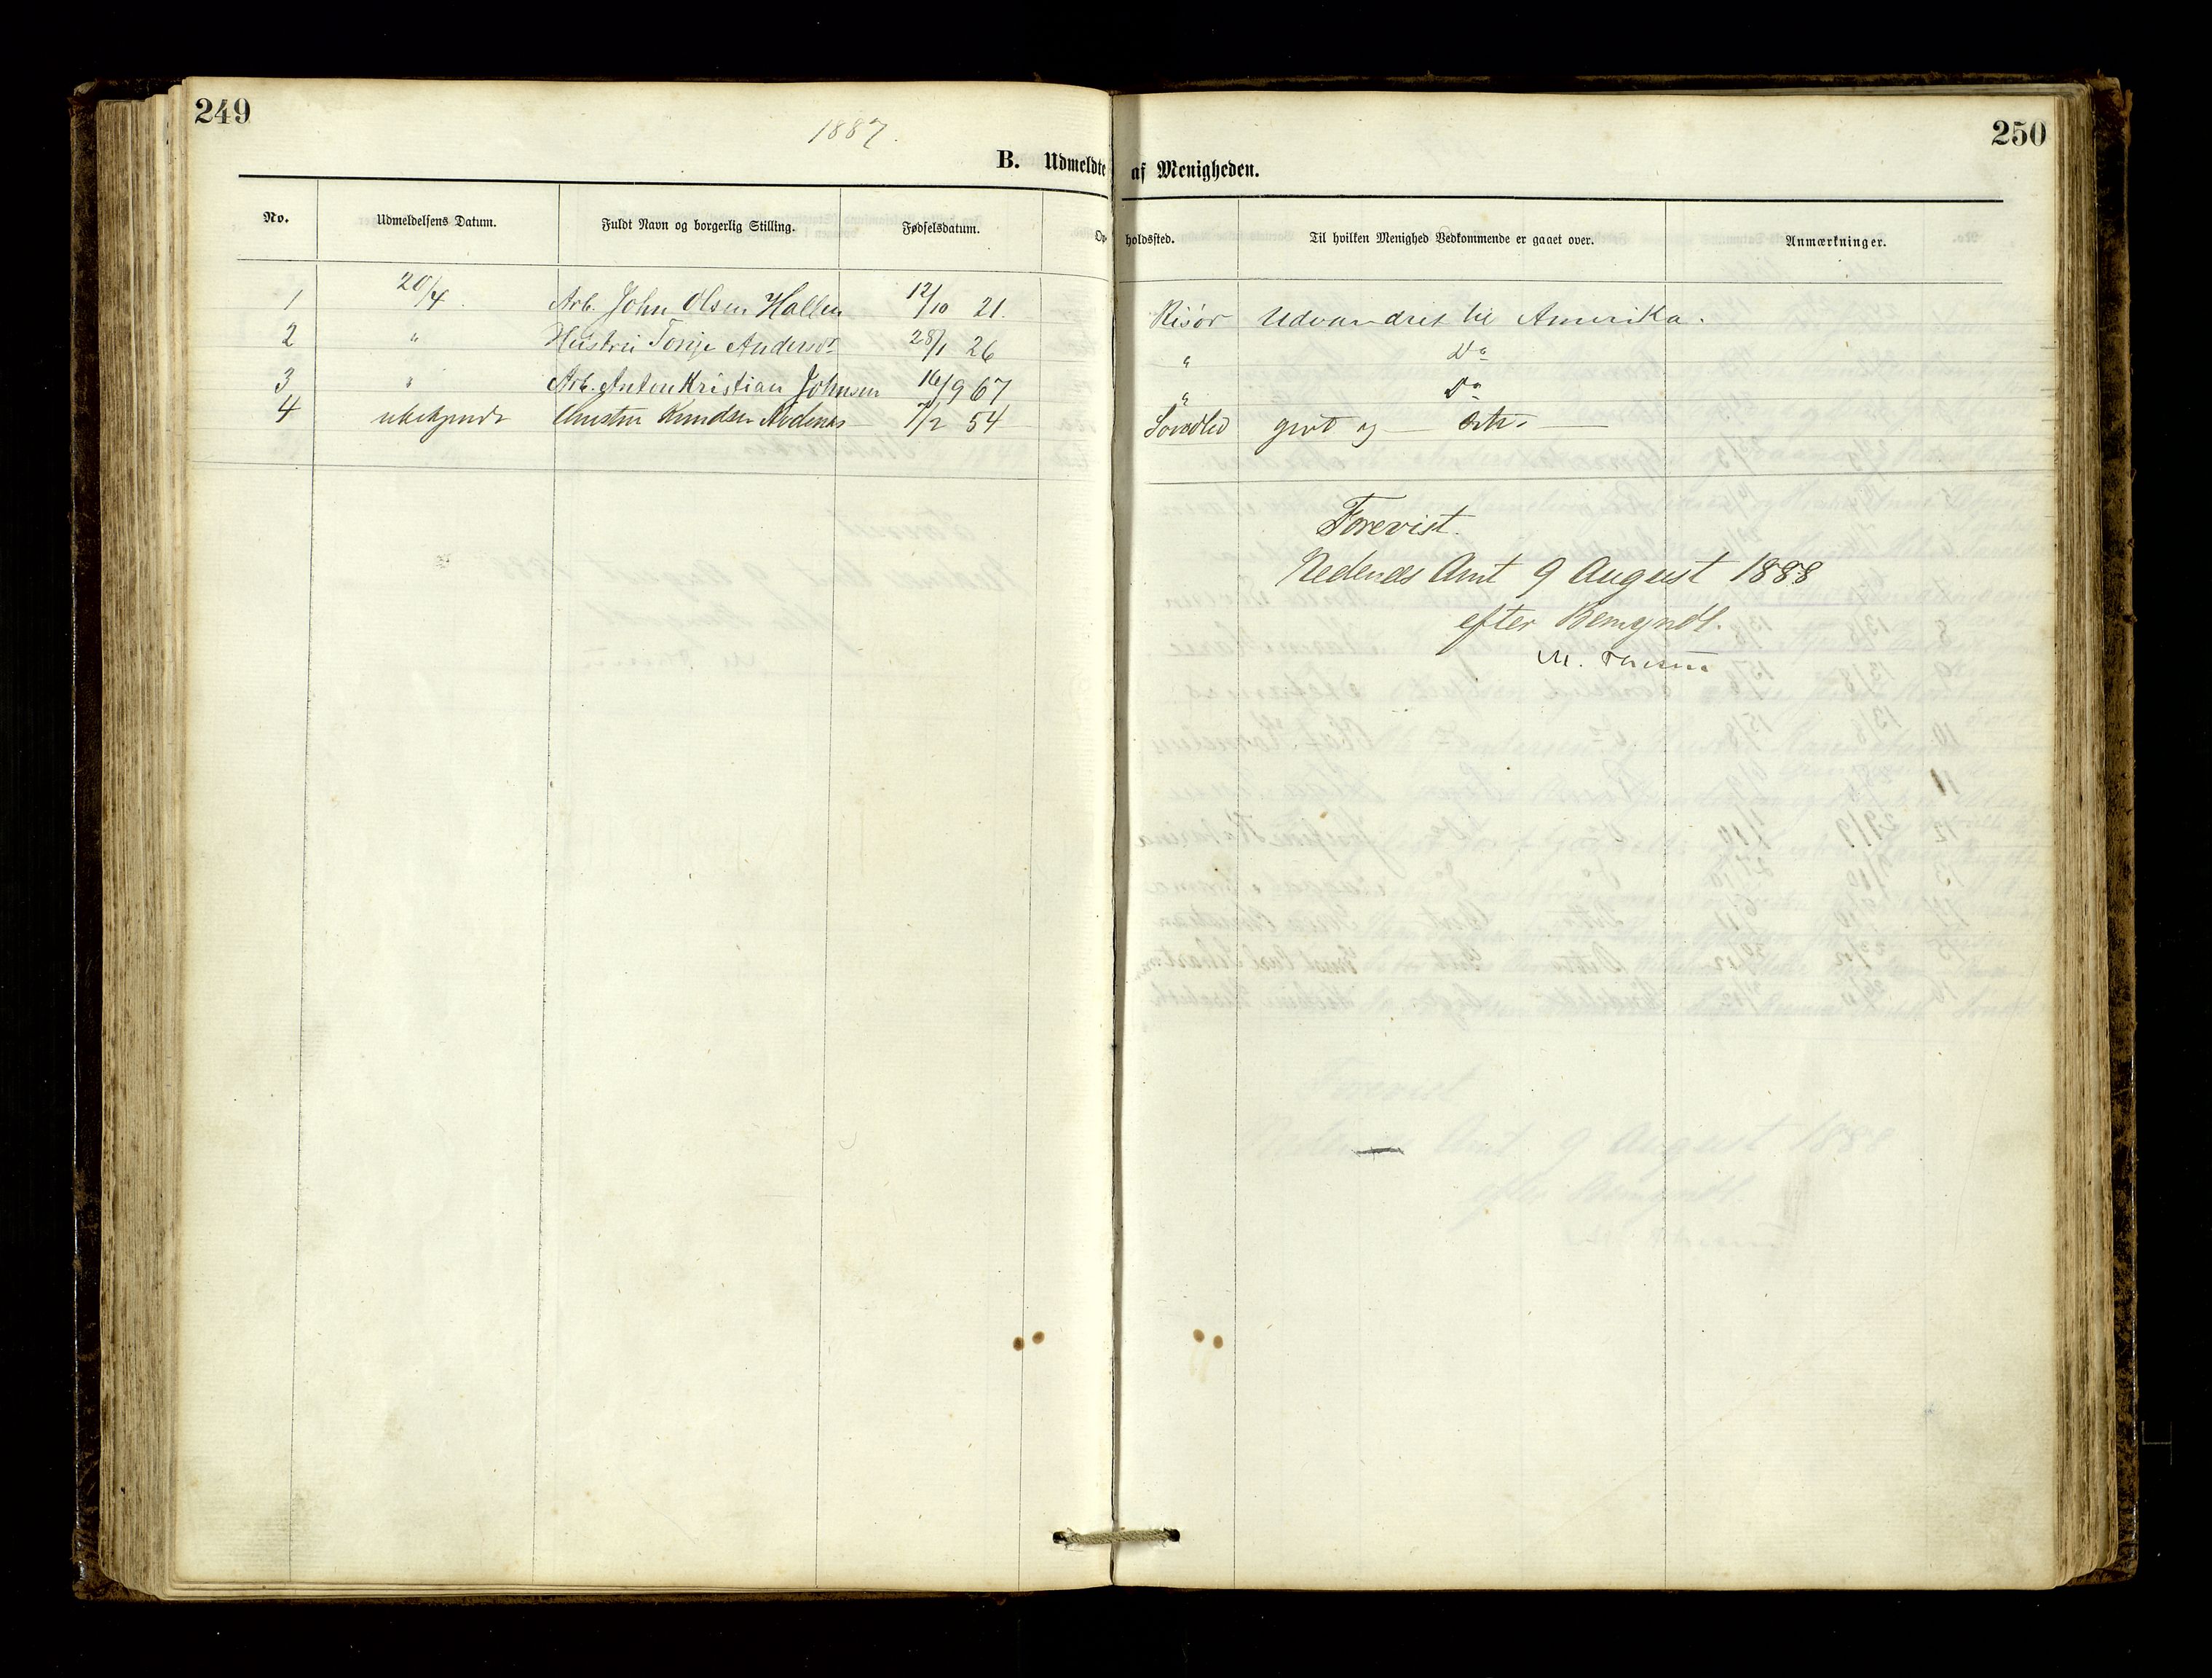 249
250
1887.
B. Udmeldte af Menigheden.
No. Udmeldelsens Datum. Fuldt Navn og borgerlig Stilling. Fødselsdatum. Opholdssted. Til hvilken Menighed Vedkommende er gaaet over. Anmærkninger.
1 20/4. Arb. John Olsen Hallen 12/10 21. Risør Udvandret til Amerika.
2 " Hustru Tonje Andersdr 28/1 26 " Do
3 " Arb. Anton Kristian Johnsen 16/9 67 " Do
4 ubekjendt Knudsen 7/2 54
Forevist.
Nedenæs Amt 9 August 1888
efter Bemyndl.
M.